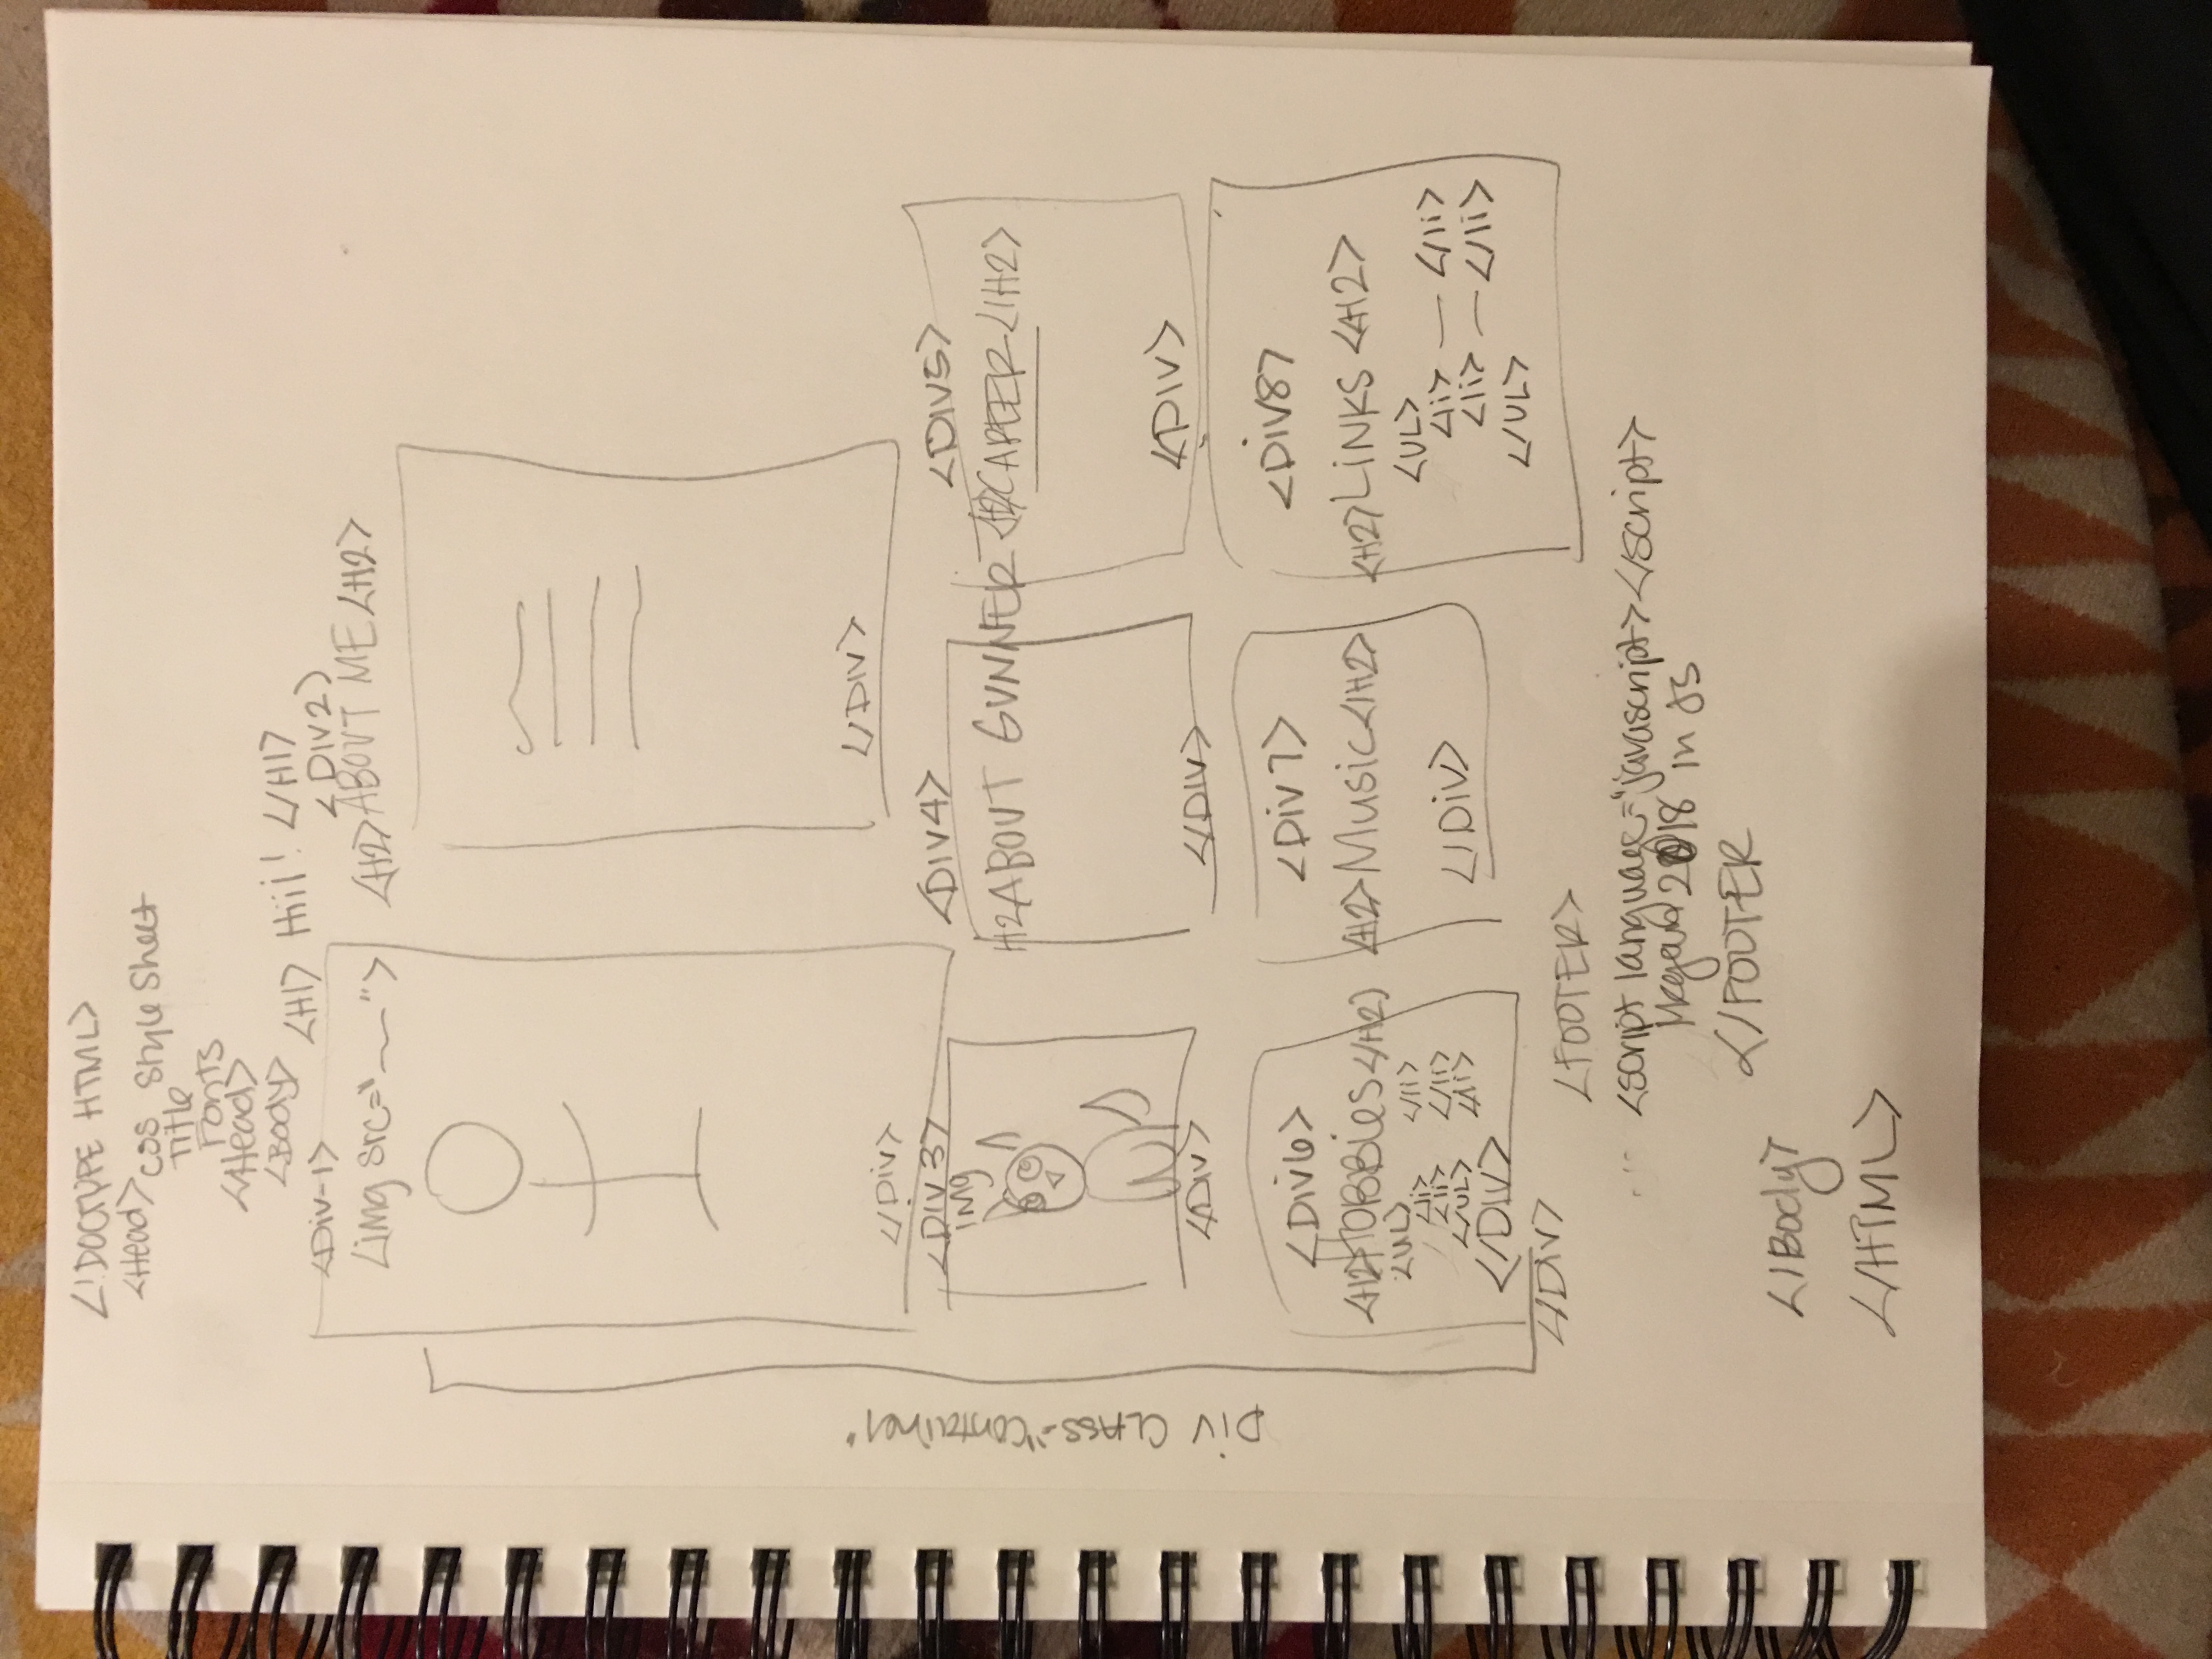 <!DOCTYPE HTML>
<Head> CSS Style Sheet
Title
Fonts
</Head>
<Body>
<H1> Hiii! </H1>
<Div-1>
<img src="__">
</Div>
<DIV2>
<H2>ABOUT ME<H2>
</DIV>
DIV CLASS="Container"
<Div 3>
img
</Div>
<DIV4>
H2ABOUT GUNNER
</DIV>
<DIV5>
<H2>CAREER</H2>
</DIV>
<Div6>
<H2>HOBBies</H2>
<UL>
<li> </li>
<li> </li>
</UL> </li>
</DIV>
<Div7>
<H2>Music</H2>
</Div>
<Div8>
<H2>LiNKS </H2>
<UL>
<li> — </li>
<li> — </li>
</UL>
</Div>
<FOOTER>
<script language="javascript></script>
2018 in JS
</FOOTER
</Body>
</HTML>